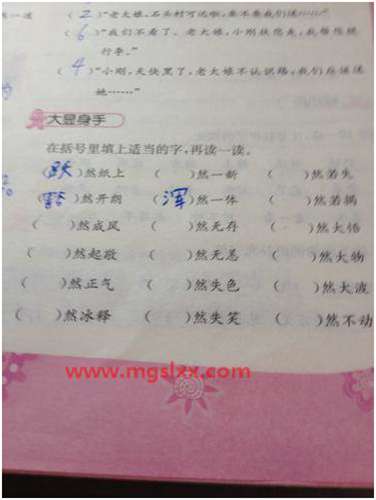 ( 2 )“老大娘，石头村可远啦，要不要我们送……”
( 6 )“我们不看了。老大娘，小刚扶您走，我帮您提
行李。”
( 4 )“小刚，天快黑了，老大娘不认识路，我们应该送
她……”
大显身手
在括号里填上适当的字，再读一读。
(跃)然纸上 ( )然一新 ( )然若失
(豁)然开朗 (浑)然一体 ( )然若揭
( )然成风 ( )然无存 ( )然大悟
( )然起敬 ( )然无恙 ( )然大物
( )然正气 ( )然失色 ( )然大波
( )然冰释 ( )然失笑 ( )然不动
www.mgslxx.com